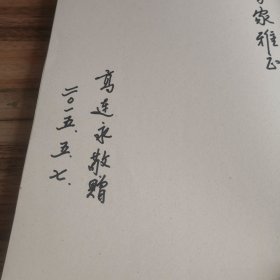 家雅正
高连永敬赠
二〇一五.五.七.